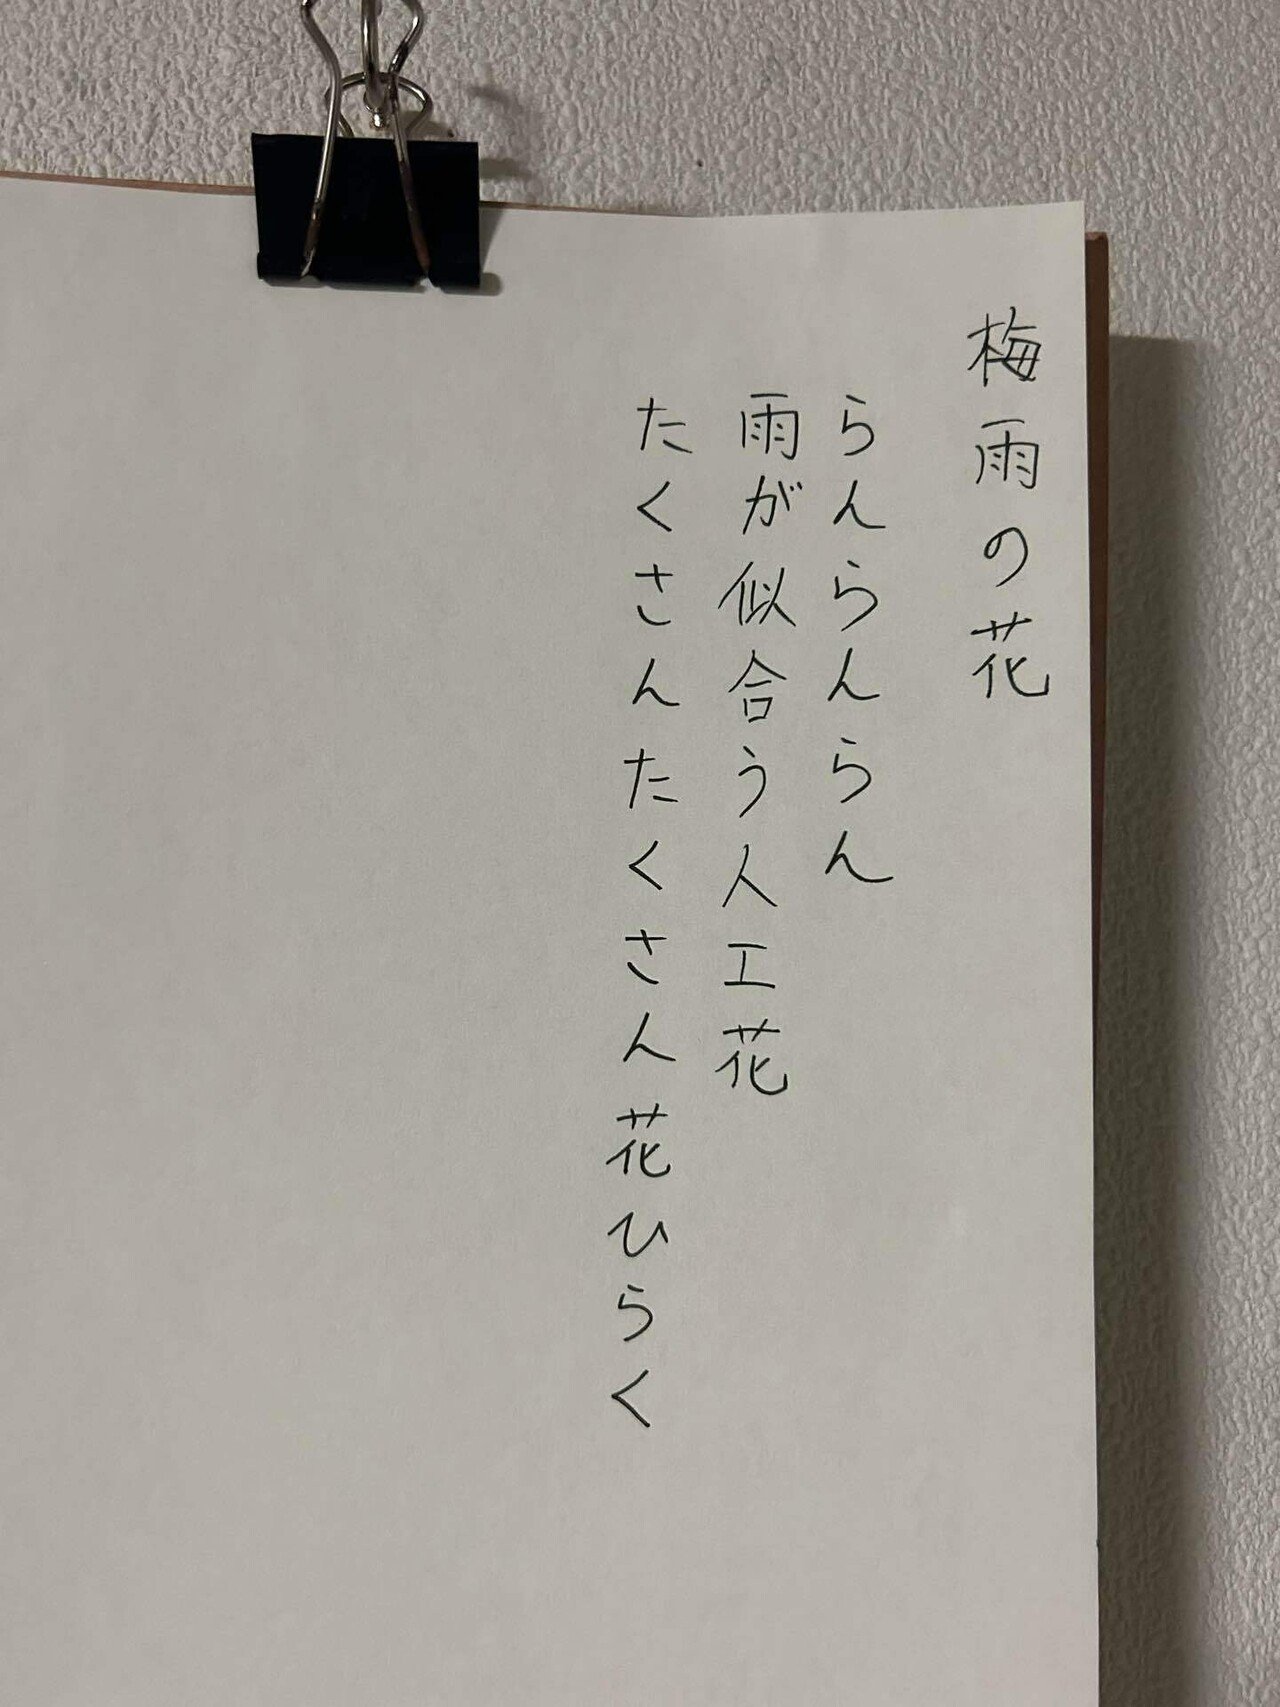 梅雨の花
らんらんらん
雨が似合う人工花
たくさんたくさん花ひらく